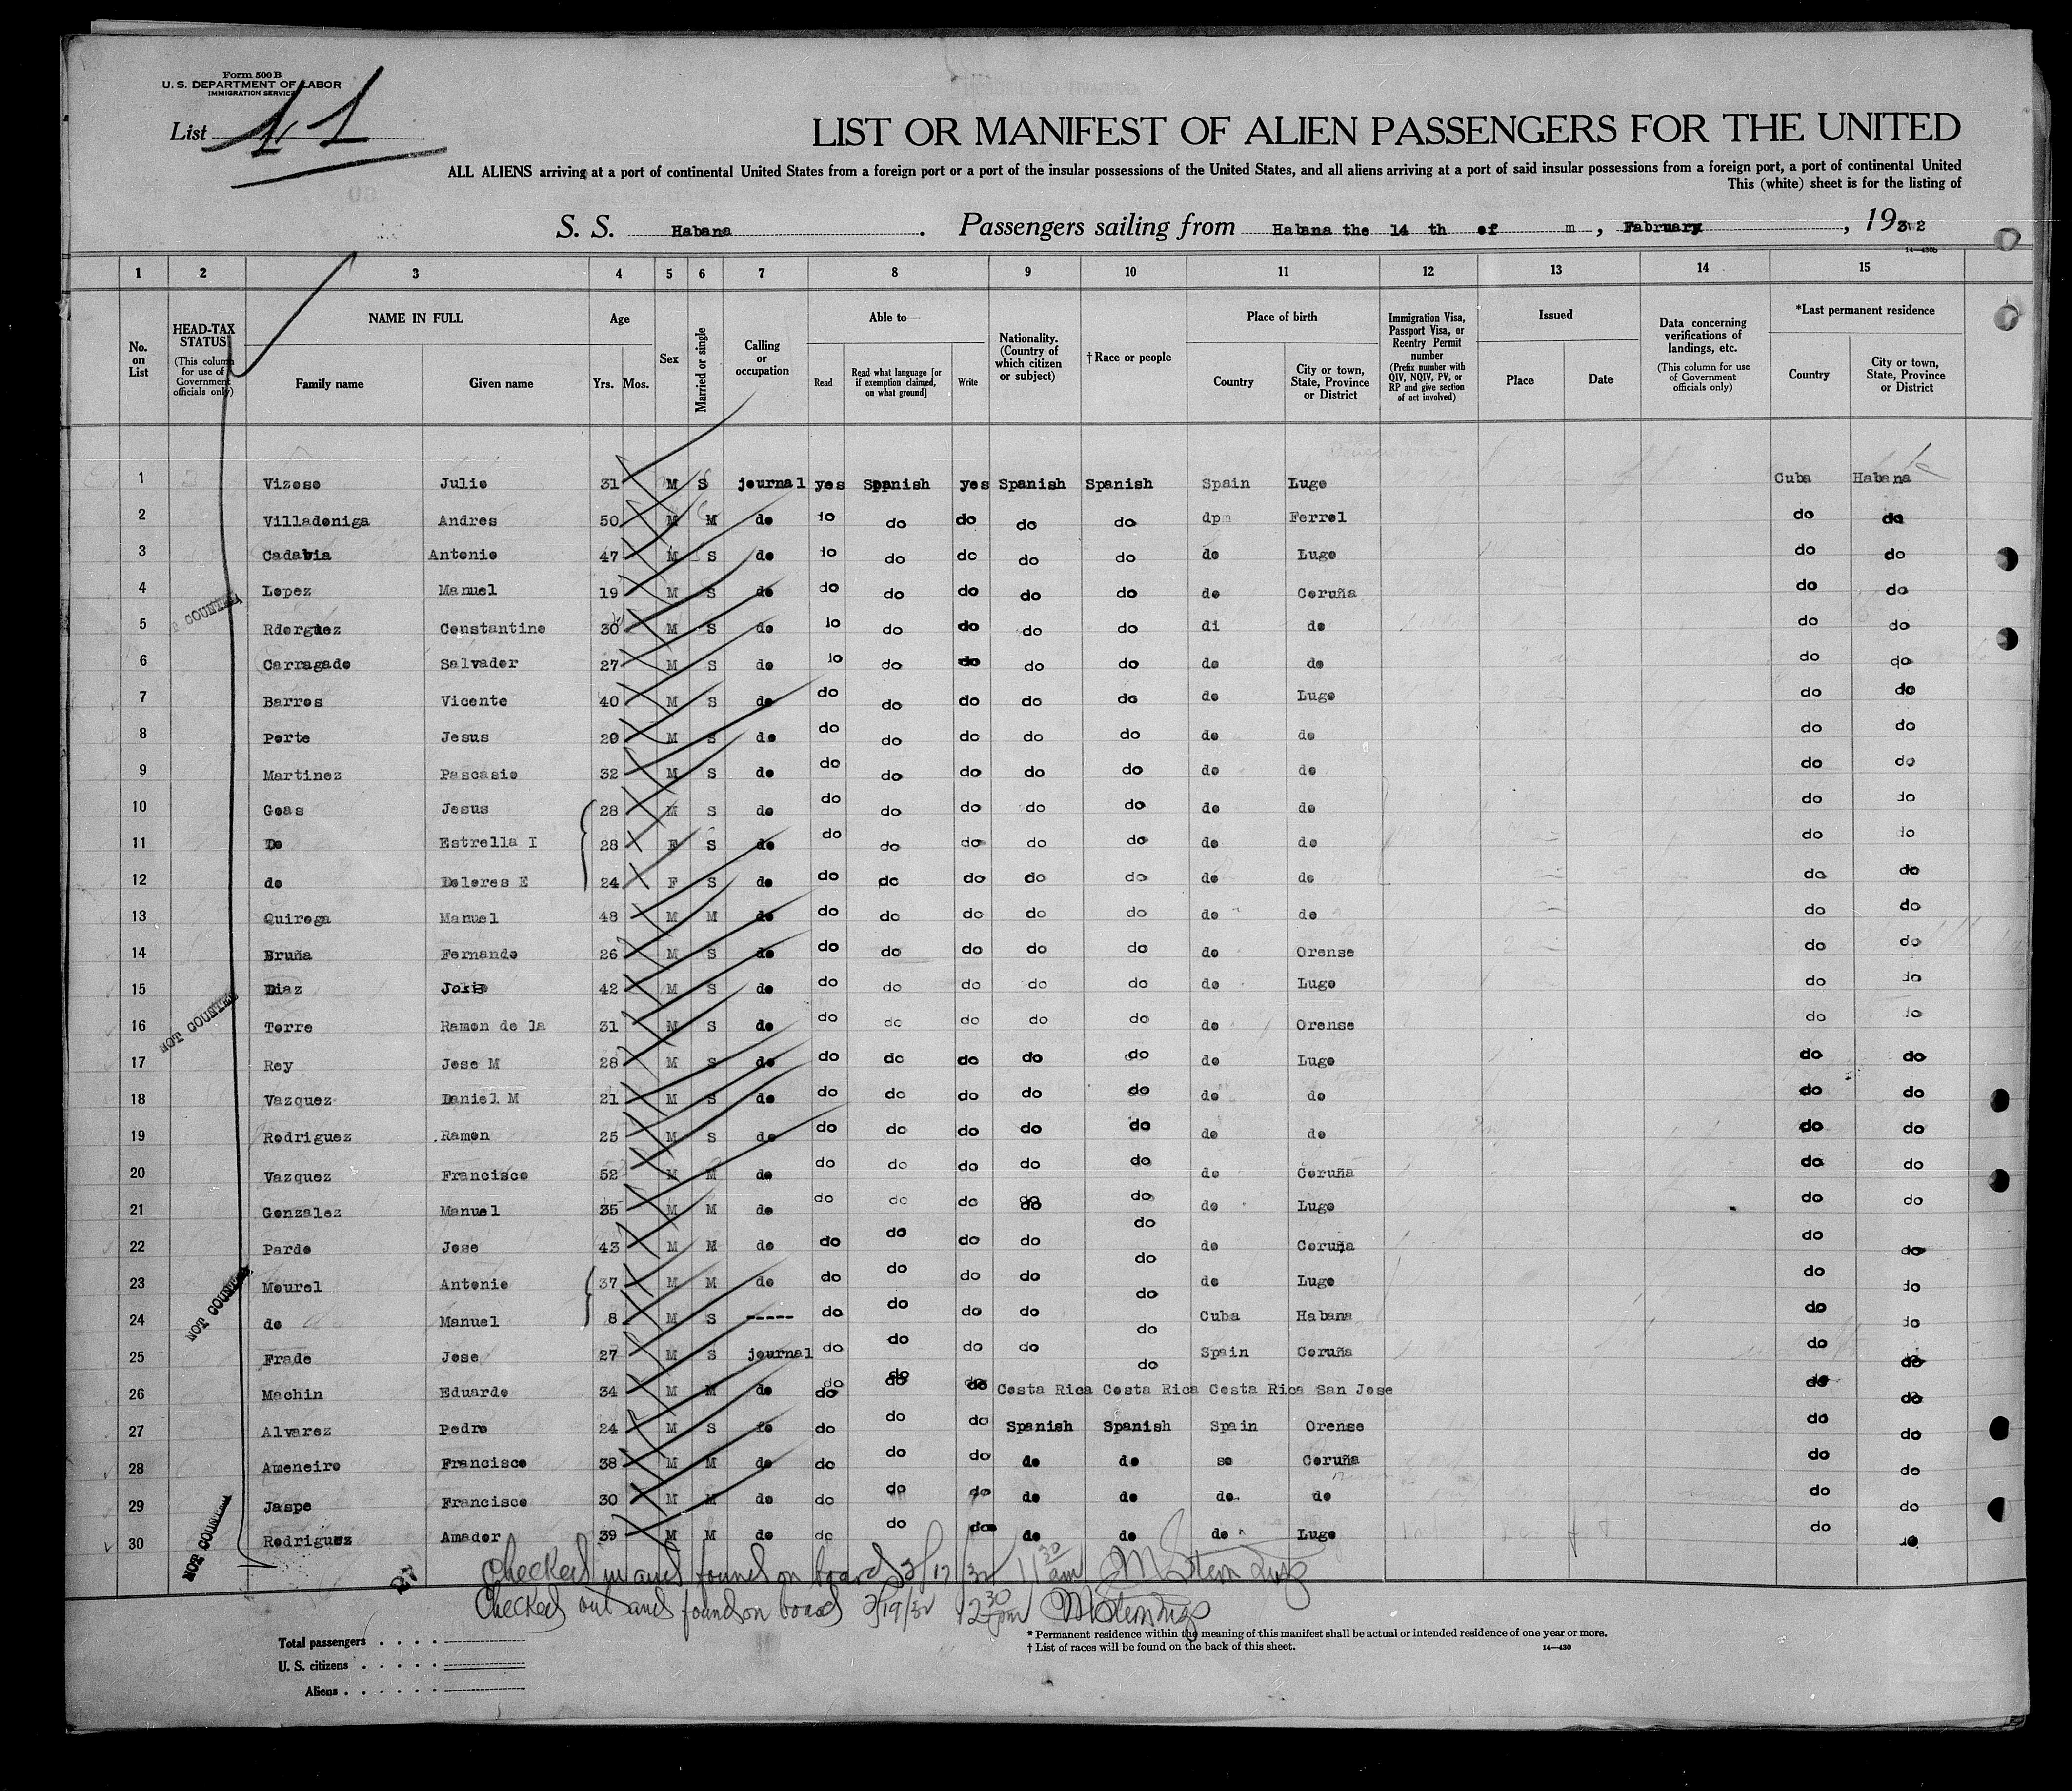 Form 500 B
U. S. DEPARTMENT OF LABOR
IMMIGRATION SERVICE
List 11
LIST OR MANIFEST OF ALIEN PASSENGERS FOR THE UNITED
ALL ALIENS arriving at a port of continental United States from a foreign port or a port of the insular possessions of the United States, and all aliens arriving at a port of said insular possessions from a foreign port, a port of continental United
This (white) sheet is for the listing of
S. S. Habana . Passengers sailing from Habana the 14 th of m , Fabruary , 1932
14—430b
1 2 3 4 5 6 7 8 9 10 11 12 13 14 15
No. on List HEAD-TAX STATUS (This column for use of Government officials only) NAME IN FULL Family name Given name Age Yrs. Mos. Sex Married or single Calling or occupation Able to— Read Read what language [or if exemption claimed, on what ground] Write Nationality. (Country of which citizen or subject) †Race or people Place of birth Country City or town, State, Province or District Immigration Visa, Passport Visa, or Reentry Permit number (Prefix number with QIV, NQIV, PV, or RP and give section of act involved) Issued Place Date Data concerning verifications of landings, etc. (This column for use of Government officials only) *Last permanent residence Country City or town, State, Province or District
1 Vizoso Julio 31 M S journal yes Spanish yes Spanish Spanish Spain Lugo Cuba Habana
2 Villadoniga Andres 50 M M do do do do do do dpm Ferrol do do
3 Cadavia Antonio 47 M S do do do do do do do Lugo do do
4 Lopez Manuel 19 M S do do do do do do do Coruña do do
5 Rdorguez Constantino 30 M S do do do do do do di do do do
6 Carragado Salvador 27 M S do do do do do do do do do do
7 Barros Vicente 40 M S do do do do do do do Lugo do do
8 Porto Jesus 29 M S do do do do do do do do do do
9 Martinez Pascasio 32 M S do do do do do do do do do do
10 Goas Jesus 28 M S do do do do do do do do do do
11 Do Estrella I 28 F S do do do do do do do do do do
12 do Dolores E 24 F S do do do do do do do do do do
13 Quiroga Manuel 48 M M do do do do do do do do do do
14 Bruña Fernando 26 M S do do do do do do do Orense do do
15 Diaz 42 M S do do do do do do do Lugo do do
16 Torre Ramon de la 31 M S do do do do do do do Orense do do
17 Rey Jose M 28 M S do do do do do do do Lugo do do
18 Vazquez Daniel M 21 M S do do do do do do do do do do
19 Rodriguez Ramon 25 M S do do do do do do do do do do
20 Vazquez Francisco 52 M M do do do do do do do Coruña do do
21 Gonzalez Manuel 35 M M do do do do do do do Lugo do do
22 Pardo Jose 43 M M do do do do do do do Coruña do do
23 Mourel Antonio 37 M M do do do do do do do Lugo do do
24 do Manuel 8 M S ----- do do do do do Cuba Habana do do
25 Frade Jose 27 M S journal do do do do do Spain Coruña do do
26 Machin Eduardo 34 M M do do do do Costa Rica Costa Rica Costa Rica San Jose do do
27 Alvarez Pedro 24 M S fo do do do Spanish Spanish Spain Orense do do
28 Ameneiro Francisco 38 M M do do do do do do so Coruña do do
29 Jaspe Francisco 30 M M do do do do do do do do do do
30 Rodriguez Amador 39 M M do do do do do do do Lugo do do
NOT COUNTED
NOT COUNTED
NOT COUNTED
NOT COUNTED
27
Checked in and found on board 2/17/32 11 30 am M Stern
Checked out and found on board 2/19/32 12 30 pm M Stern
Total passengers
U. S. citizens
Aliens
* Permanent residence within the meaning of this manifest shall be actual or intended residence of one year or more.
† List of races will be found on the back of this sheet. 14—430